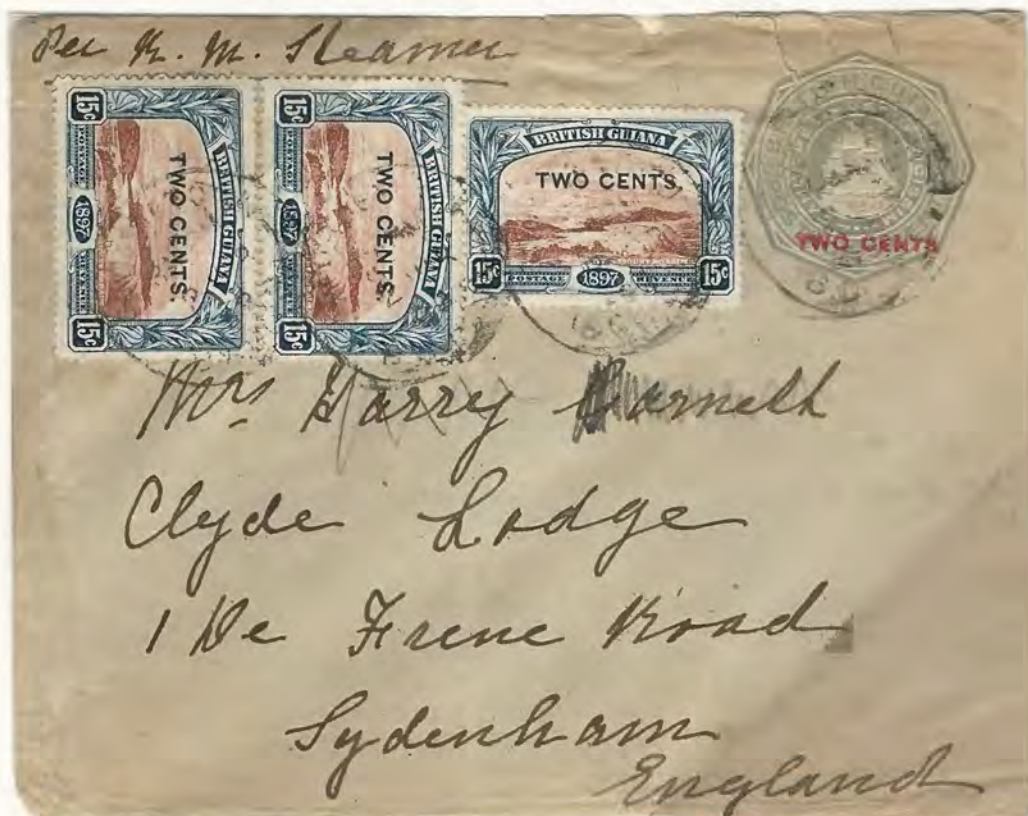 Per R. M. Steamer
15c BRITISH GUIANA TWO CENTS. POSTAGE 1897 REVENUE 15c
15c BRITISH GUIANA TWO CENTS. POSTAGE 1897 REVENUE 15c
BRITISH GUIANA
TWO CENTS.
15c POSTAGE 1897 REVENUE 15c
TWO CENTS
Mrs Harry Barnett
Clyde Lodge
1 De Frene Road
Sydenham
England